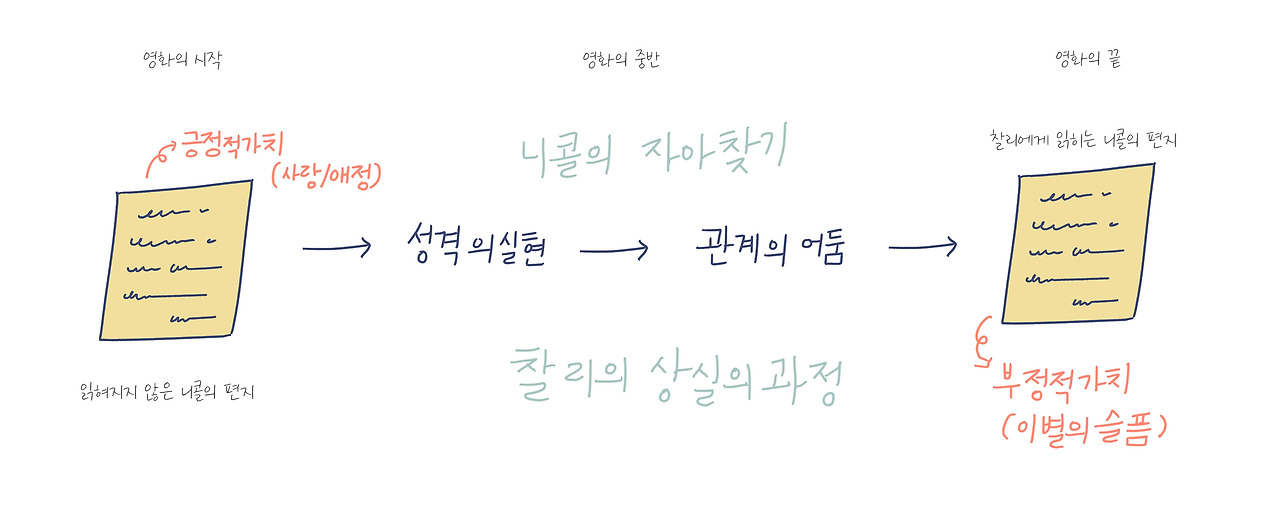 영화의 시작
영화의 중반
영화의 끝
긍정적가치
(사랑/애정)
니콜의 자아찾기
찰리에게 읽히는 니콜의 편지
성격의실현
관계의 어둠
찰리의 상실의 과정
읽혀지지 않은 니콜의 편지
부정적가치
(이별의슬픔)